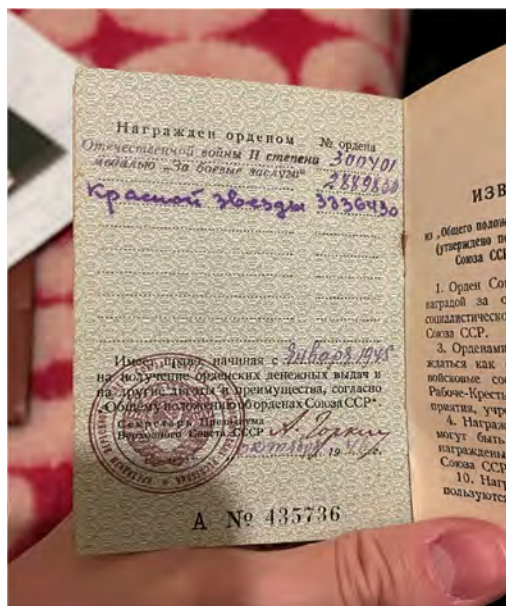 Награжден орденом № ордена
Отечественной войны II степени 300401
медалью „За боевые заслуги“ 2889800
Красной звезды 3336430
Имеет право, начиная с Января 1945
на получение орденских денежных выдач и
на другие льготы и преимущества, согласно
„Общему положению об орденах Союза ССР“.
Секретарь Президиума
Верховного Совета СССР А. Горкин
октября 19
А № 435736
ИЗВ
из „Общего полож
(утверждено по
Союза ССР
1. Орден Сою
наградой за о
социалистическо
Союза ССР.
3. Орденами
ждаться как
войсковые сое
Рабоче-Кресть
приятия, учре
4. Награжд
могут быть
награждены
Союза ССР
10. Нагр
пользуются